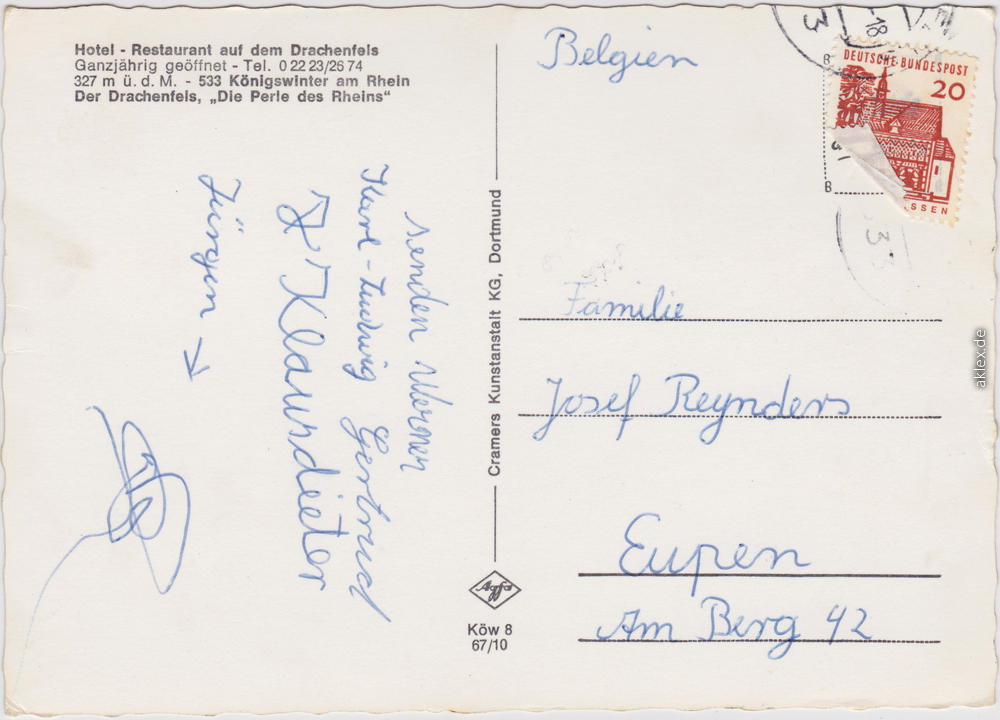 Hotel - Restaurant auf dem Drachenfels
Ganzjährig geöffnet - Tel. 0 22 23/26 74
327 m ü. d. M. - 533 Königswinter am Rhein
Der Drachenfels, „Die Perle des Rheins“
senden Werner
Karl-Ludwig Gertrud
Klausdieter
Jürgen →
Cramers Kunstanstalt KG, Dortmund
Agfa
Köw 8
67/10
Belgien
DEUTSCHE BUNDESPOST
20
SSEN
B
B
3
-18
33
Familie
Josef Reynders
Eupen
Am Berg 42
aklex.de